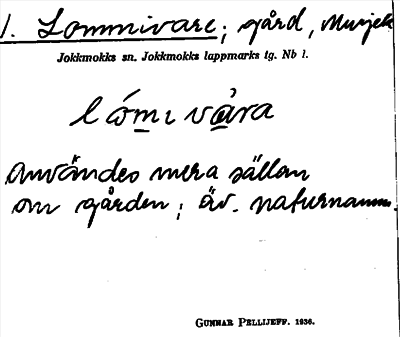 1. Lommivare; gård, Murjek
Jokkmokks sn. Jokkmokks lappmarks tg. Nb l.
lómı vȧra
användes mera sällan
om gården; äv. naturnamn.
GUNNAR PELLIJEFF. 1936.